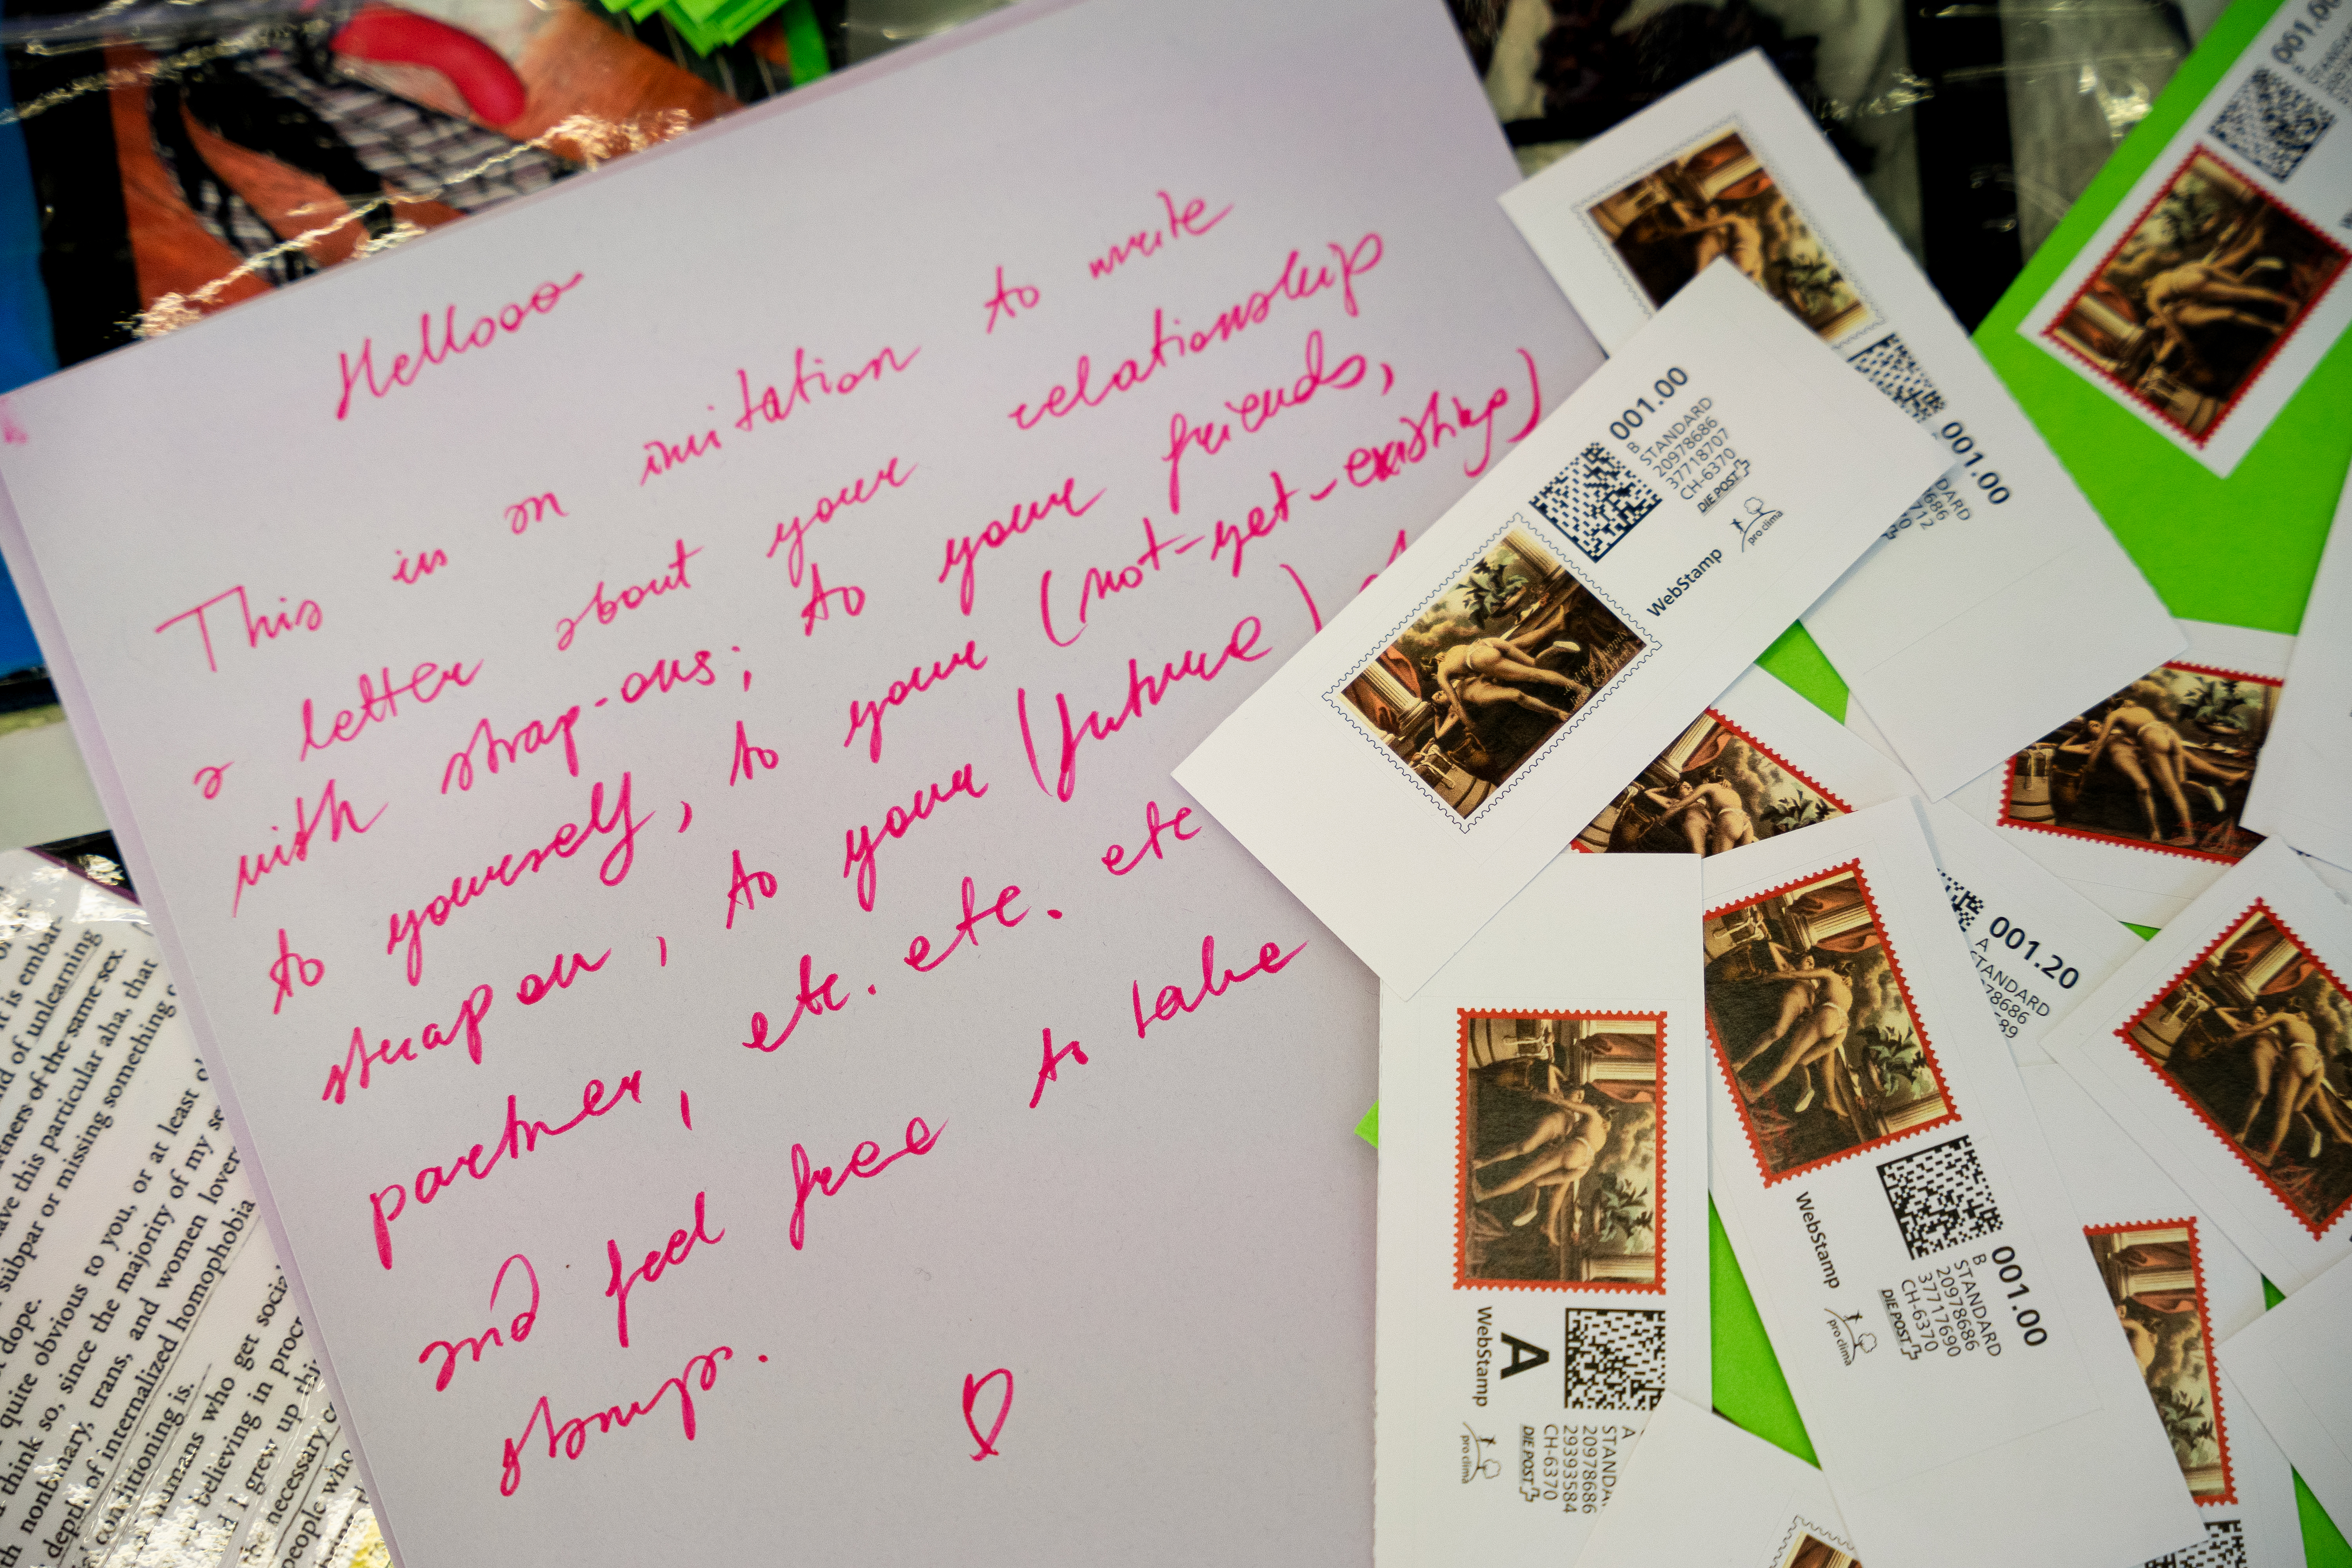 Hellooo
This is an invitation to write
a letter about your relationship
with strap-ons; to your friends,
to yourself, to your (not-yet-existing)
strap on, to your (future)
partner, etc. etc. etc
and feel free to take
stamps.
001.00
B
STANDARD
20978686
37718707
CH-6370
DIE POST
WebStamp
pro clima
001.00
DARD
686
712
0
001.00
001.20
A
STANDARD
78686
89
WebStamp
A
pro clima
A
STANDA
20978686
29393584
CH-6370
DIE POST
WebStamp
pro clima
001.00
B
STANDARD
20978686
37717690
CH-6370
DIE POST
it is embar-
nd of unlearning
rtners of the same sex.
ave this particular aha, that
subpar or missing something
dope.
quite obvious to you, or at least
think so, since the majority of my
nonbinary, trans, and women lovers
depth of internalized homophobia
conditioning is.
humans who get social
believing in
I grew up
the necessary
people who